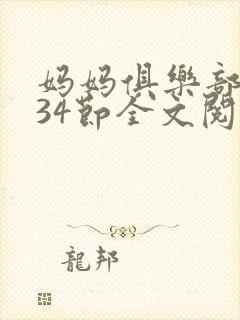 妈妈俱樂部
34節全文閱
龍邦